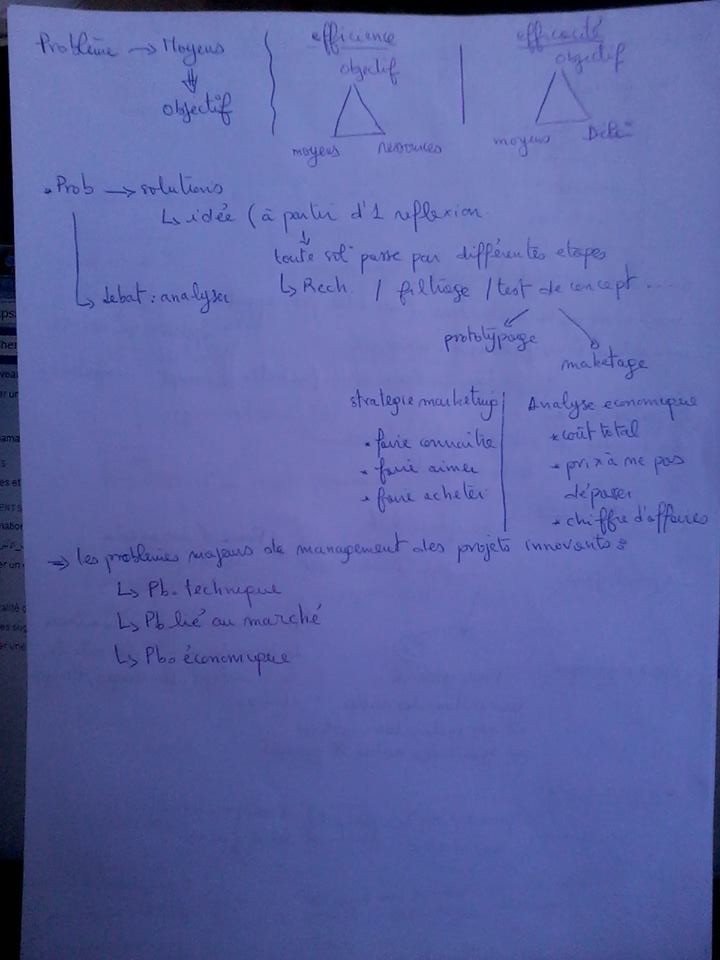 Problème → Moyens
⇓
objectif
efficience
objectif
moyens ressources
efficacité
objectif
moyens
. Prob → solutions
↳ idée (à partir d'1 reflexion
↓
toute sol° passe par différentes etapes
↳ debat : analyser
↳ Rech / filtrage / test de concept ...
prototypage
maketage
strategie marketing
• faire connaitre
• faire aimer
• faire acheter
Analyse economique
* coût total
* prix à ne pas
dépasser
* chiffre d'affaires
⇒ les problèmes majeurs de management des projets innovants :
↳ Pb. technique
↳ Pb lié au marché
↳ Pb. économique